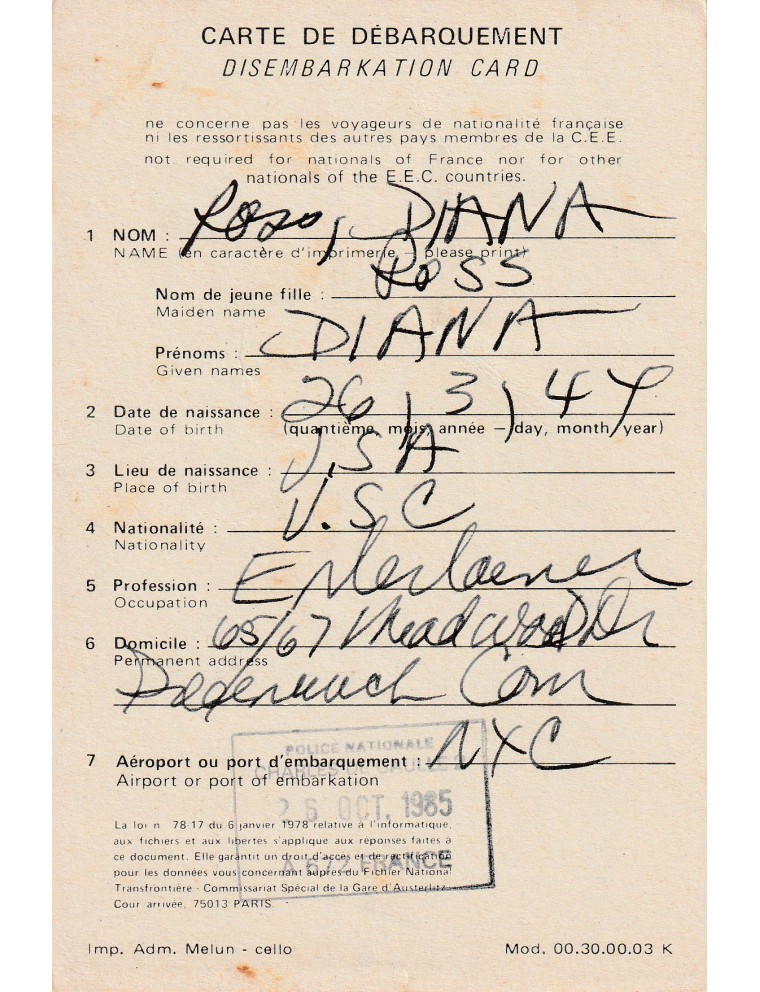 CARTE DE DÉBARQUEMENT
DISEMBARKATION CARD
ne concerne pas les voyageurs de nationalité française
ni les ressortissants des autres pays membres de la C.E.E.
not required for nationals of France nor for other
nationals of the E.E.C. countries.
1 NOM : Ross, DIANA
NAME (en caractère d'imprimerie – please print)
Nom de jeune fille : ROSS
Maiden name
Prénoms : DIANA
Given names
2 Date de naissance : 26, 3, 44
Date of birth (quantième, mois, année – day, month, year)
3 Lieu de naissance : U.S.A
Place of birth
4 Nationalité : U.S.C
Nationality
5 Profession : Entertainer
Occupation
6 Domicile : 65/67 Dr
Permanent address
Conn
7 Aéroport ou port d'embarquement : NYC
Airport or port of embarkation
POLICE NATIONALE
CHARLES DE GAULLE 2
26 OCT. 1985
A 672 FRANCE
La loi n° 78-17 du 6 janvier 1978 relative à l'informatique,
aux fichiers et aux libertes s'applique aux réponses faites à
ce document. Elle garantit un droit d'accès et de rectification
pour les données vous concernant auprès du Fichier National
Transfrontière - Commissariat Spécial de la Gare d'Austerlitz
Cour arrivée, 75013 PARIS.
Imp. Adm. Melun - cello
Mod. 00.30.00.03 K